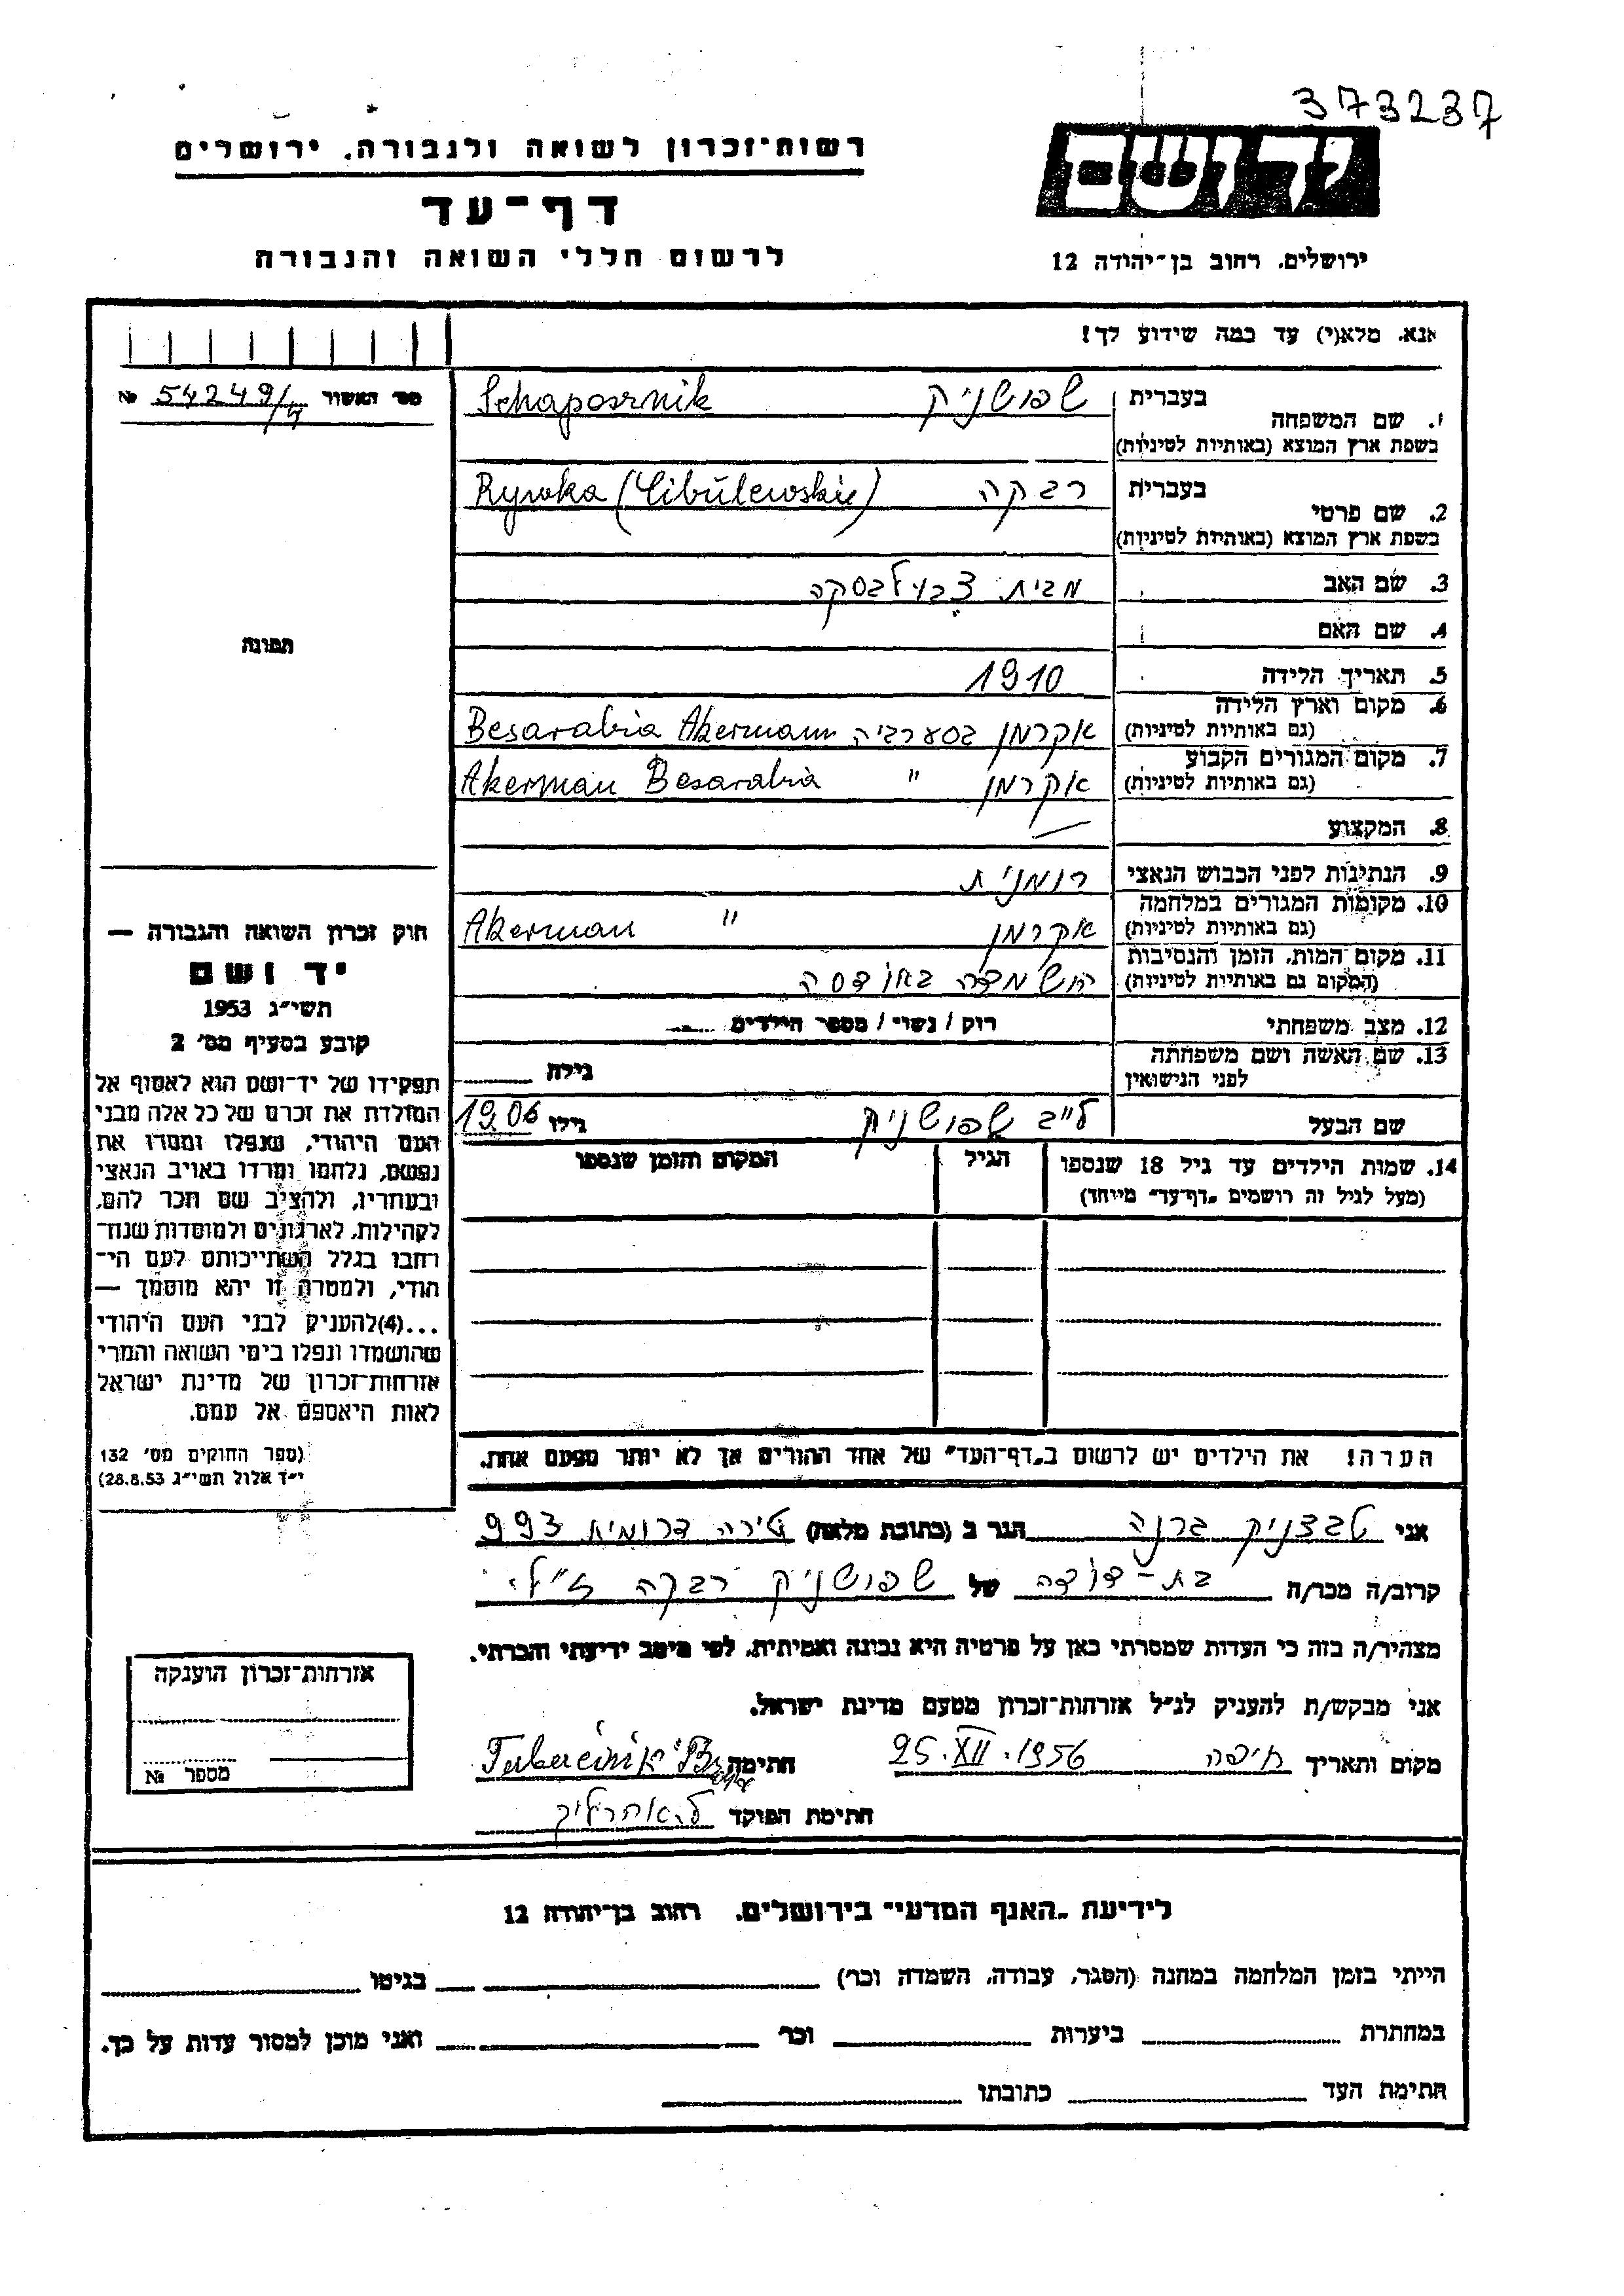 373237
יד ושם
ירושלים, רחוב בן־יהודה 12
רשות־זכרון לשואה ולגבורה, ירושלים
דף־עד
לרשום חללי השואה והגבורה
אנא, מלא(י) עד כמה שידוע לך!
מס׳ האשור № 54249/4
1. שם המשפחה
בעברית שפושניק Schaposznik
בשפת ארץ המוצא (באותיות לטיניות)
2. שם פרטי
בעברית רבקה Rywka (Cibulewskie)
בשפת ארץ המוצא (באותיות לטיניות)
3. שם האב מבית צבולבסקה
4. שם האם
5. תאריך הלידה 1910
6. מקום וארץ הלידה אקרמן בסערביה Besarabia Akermann
(גם באותיות לטיניות)
7. מקום המגורים הקבוע אקרמן " Akerman Besarabia
(גם באותיות לטיניות)
8. המקצוע —
9. הנתינות לפני הכבוש הנאצי רומנית
10. מקומות המגורים במלחמה אקרמן " Akerman
(גם באותיות לטיניות)
11. מקום המות, הזמן והנסיבות הושמדה באודסה
(המקום גם באותיות לטיניות)
12. מצב משפחתי רווק / נשוי / מספר הילדים
13. שם האשה ושם משפחתה
לפני הנישואין גילה
שם הבעל לייב שפושניק גילו 1906
14. שמות הילדים עד גיל 18 שנספו הגיל המקום והזמן שנספו
(מעל לגיל זה רושמים „דף־עד" מיוחד)
הערה! את הילדים יש לרשום ב„דף־העד" של אחד ההורים אך לא יותר מפעם אחת.
תמונה
חוק זכרון השואה והגבורה —
יד ושם
תשי״ג 1953
קובע בסעיף מס׳ 2
תפקידו של יד־ושם הוא לאסוף אל
המולדת את זכרם של כל אלה מבני
העם היהודי, שנפלו ומסרו את
נפשם, נלחמו ומרדו באויב הנאצי
ובעוזריו, ולהציב שם וזכר להם,
לקהילות, לארגונים ולמוסדות שנח־
רבו בגלל השתייכותם לעם הי־
הודי, ולמטרה זו יהא מוסמך —
...(4)להעניק לבני העם היהודי
שהושמדו ונפלו בימי השואה והמרי
אזרחות־זכרון של מדינת ישראל
לאות היאספם אל עמם.
(ספר החוקים מס׳ 132
י״ז אלול תשי״ג 28.8.53)
אני טבצניק ברנה הגר ב (כתובת מלאה) טירה דרומית 993
קרוב/ה מכר/ה בת-דודה של שפושניק רבקה ז״ל
מצהיר/ה בזה כי העדות שמסרתי כאן על פרטיה היא נכונה ואמיתית, לפי מיטב ידיעתי והכרתי.
אני מבקש/ת להעניק לנ״ל אזרחות־זכרון מטעם מדינת ישראל.
מקום ותאריך חיפה 25.XII.1956 חתימה
חתימת הפוקד
אזרחות־זכרון הוענקה
מספר №
לידיעת „האגף המדעי" בירושלים, רחוב בן־יהודה 12
הייתי בזמן המלחמה במחנה (הסגר, עבודה, השמדה וכר׳) בגיטו
במחתרת ביערות וכר׳ ואני מוכן למסור עדות על כך.
חתימת העד כתובתו